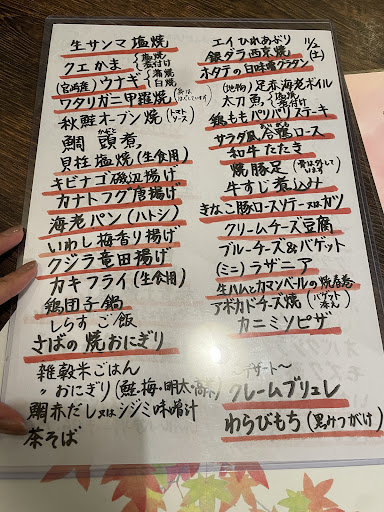 生サンマ 塩焼
クエかま { 塩焼 煮付け
(宮崎産) ウナギ { 蒲焼 白焼
ワタリガニ甲羅焼 (身はほぐしています)
秋鮭オーブン焼
鯛 頭煮
貝柱 塩焼 (生食用)
キビナゴ磯辺揚げ
カナトフグ唐揚げ
海老パン (ハトシ)
いわし梅香り揚げ
クジラ竜田揚げ
カキフライ (生食用)
鶏団子鍋
しらすご飯
さばの焼おにぎり
雑穀米ごはん
〃 おにぎり (鮭・梅・明太・高菜)
鯛赤だし又はシジミ味噌汁
茶そば
11/2 (土)
エイひれあぶり
銀ダラ西京焼
ホタテの白味噌グラタン
(地物) 足赤海老ボイル
太刀魚 { 塩焼 煮付け
鶏ももパリパリステーキ
サラダ風合鴨ロース
和牛たたき
焼豚足 (骨は外しています)
牛すじ煮込み
きなこ豚ロースソテー又はカツ
クリームチーズ豆腐
ブルーチーズ&バゲット
(ミニ) ラザニア
生ハムとカマンベールの焼春巻
アボカドチーズ焼 (バゲット2本入)
カニミソピザ
〜デザート〜
クレームブリュレ
わらびもち (黒みつがけ)